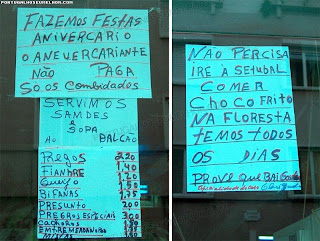 PORTUGALNOSEUMELHOR.COM
FAZEMOS FESTAS
ANIVERCARIO
O ANEVERCARIANTE
NÃO PAGA
SÓ OS COMBIDADOS
SERVIMOS
SAMDES
E
SOPA
AO BALCÃO
PREGOS 2,20
FIANBRE 1,40
QUEIJO 1,20
BIFANAS
PRESUNTO 200
PREGROS ESPECIAIS 300
NÃO PERCISA
IRE À SETUBAL
COMER
CHOCO FRITO
NA FLORESTA
TEMOS TODOS
OS DIAS
PROVE QUE BAI